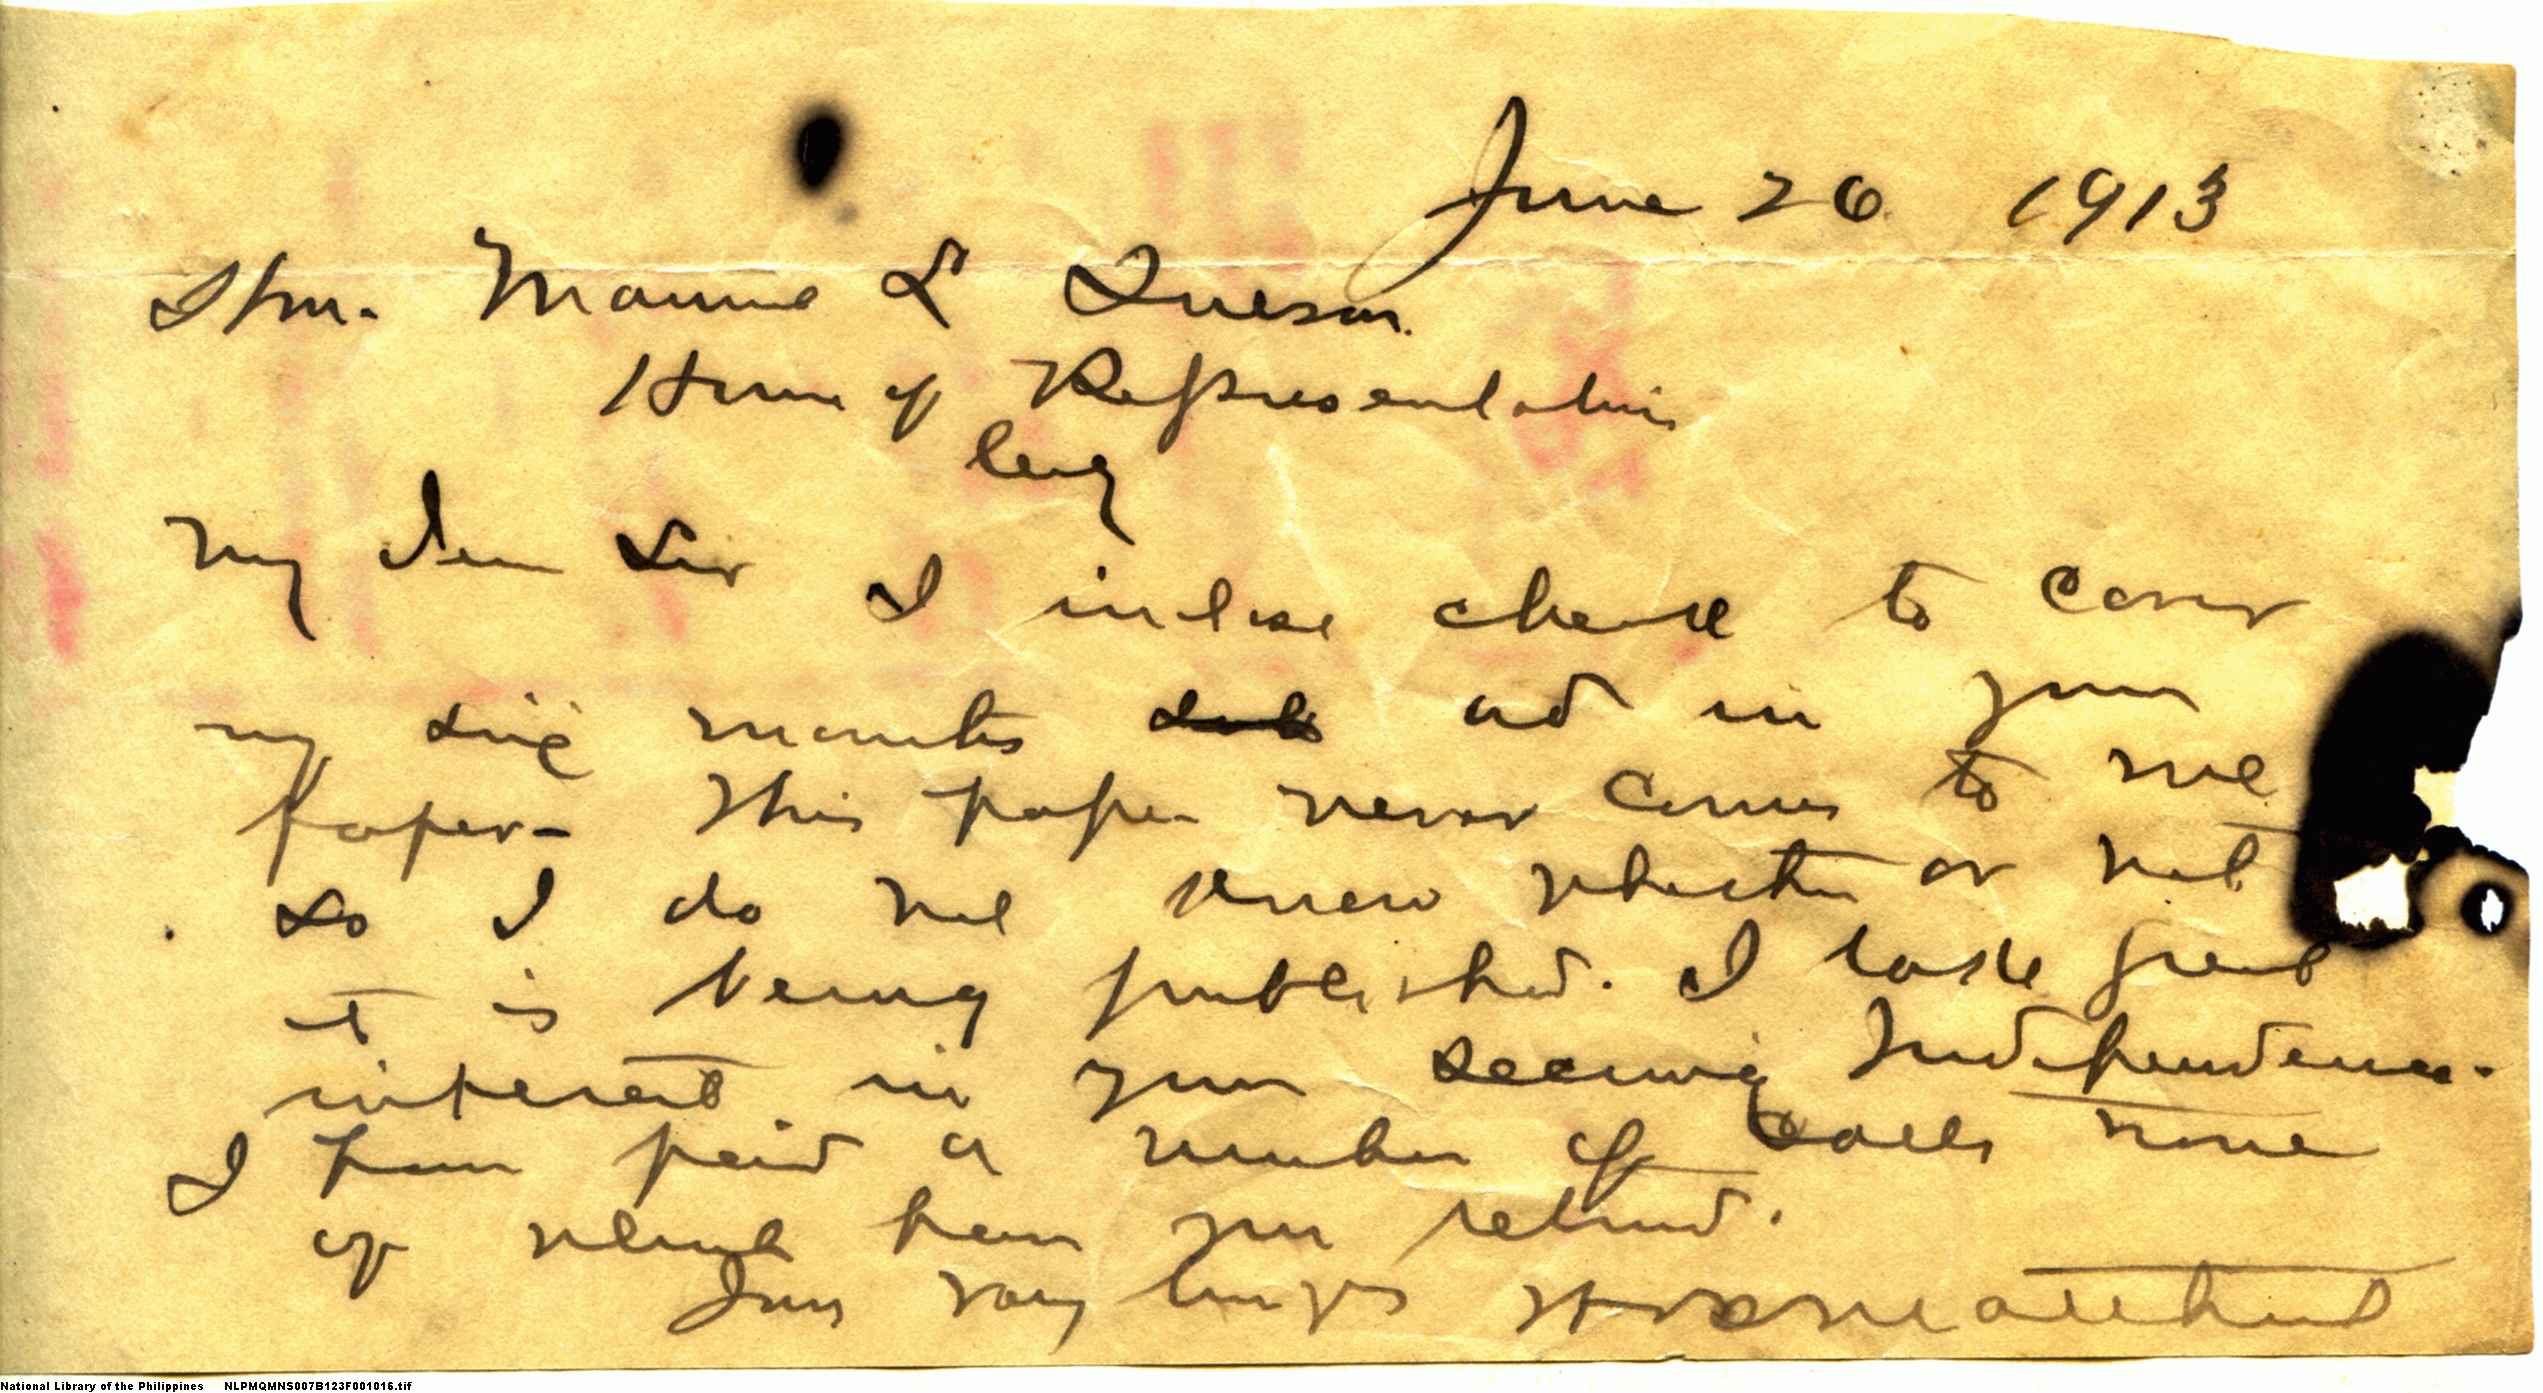 June 26 1913
Hon. Manuel L Quezon.
House of Representatives
City
My dear Sir I inclose check to cover
my six months ad in your
paper - This paper never comes to me
So I do not know whether or not
it is being published. I take great
interest in your seeing Independence.
I have paid a number of calls none
of which have you returned.
Yours very truly
National Library of the Philippines NLPMQMNS007B123F001016.tif